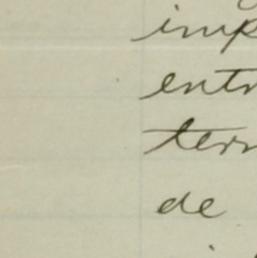 imp
entr
terr
de